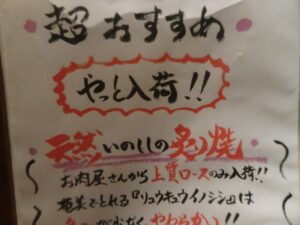 超おすすめ
やっと入荷!!
天然いのししの炙り焼
お肉屋さんから上質ロースのみ入荷!!
奄美でとれる『リュウキュウイノシシ』は
少なく、やわらかい!!